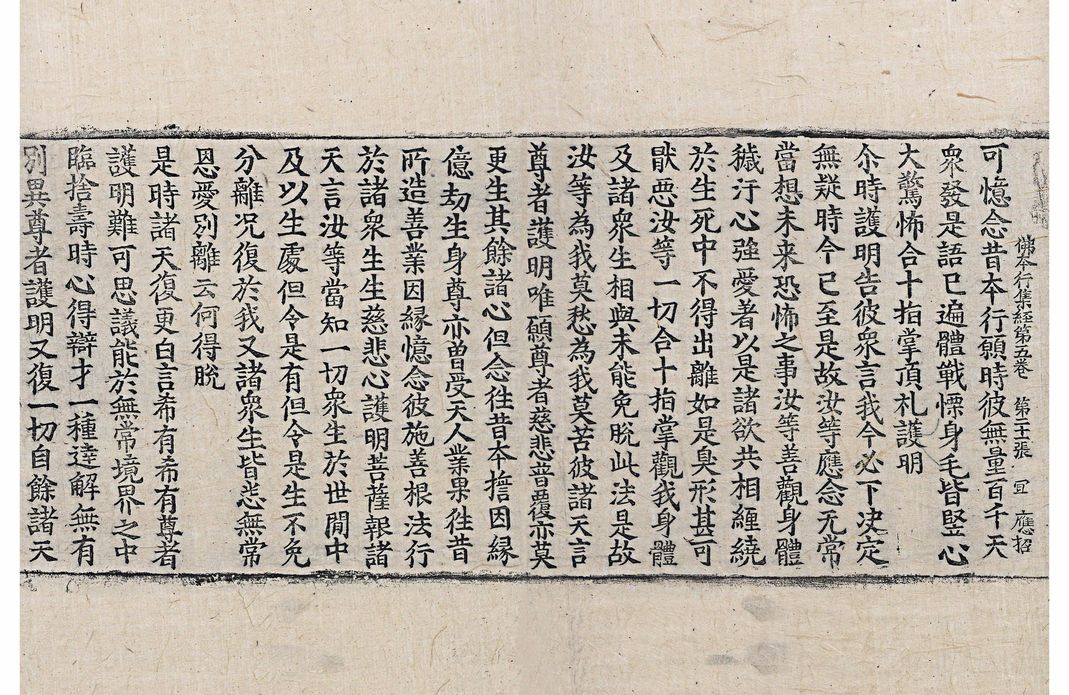 佛夲行集經第五卷 第二十張 冝 應招
可憶念昔夲行願時彼無量百千天
衆發是語已遍體戰慄身毛皆竪心
大驚怖合十指掌頂礼護明
尒時護明告彼衆言我今必下决定
無疑時今已至是故汝等應念无常
當想未来恐怖之事汝等善觀身體
穢汙心強愛著以是諸欲共相纏繞
於生死中不得出離如是臭形甚可
猒惡汝等一切合十指掌觀我身體
及諸衆生相與未能免脫此法是故
汝等為我莫愁為我莫苦彼諸天言
尊者護明唯願尊者慈悲普覆亦莫
更生其餘諸心但念往昔夲擔因緣
億劫生身尊亦曽受天人業果徃昔
所造善業因緣憶念彼施善根法行
於諸衆生生慈悲心護明菩薩報諸
天言汝等當知一切衆生於世閒中
及以生處但令是有但令是生不免
分離况復於我又諸衆生皆悉無常
恩愛別離云何得脫
是時諸天復更白言希有希有尊者
護明難可思議能於無常境界之中
臨捨壽時心得辯才一種逹解無有
別異尊者護明又復一切自餘諸天